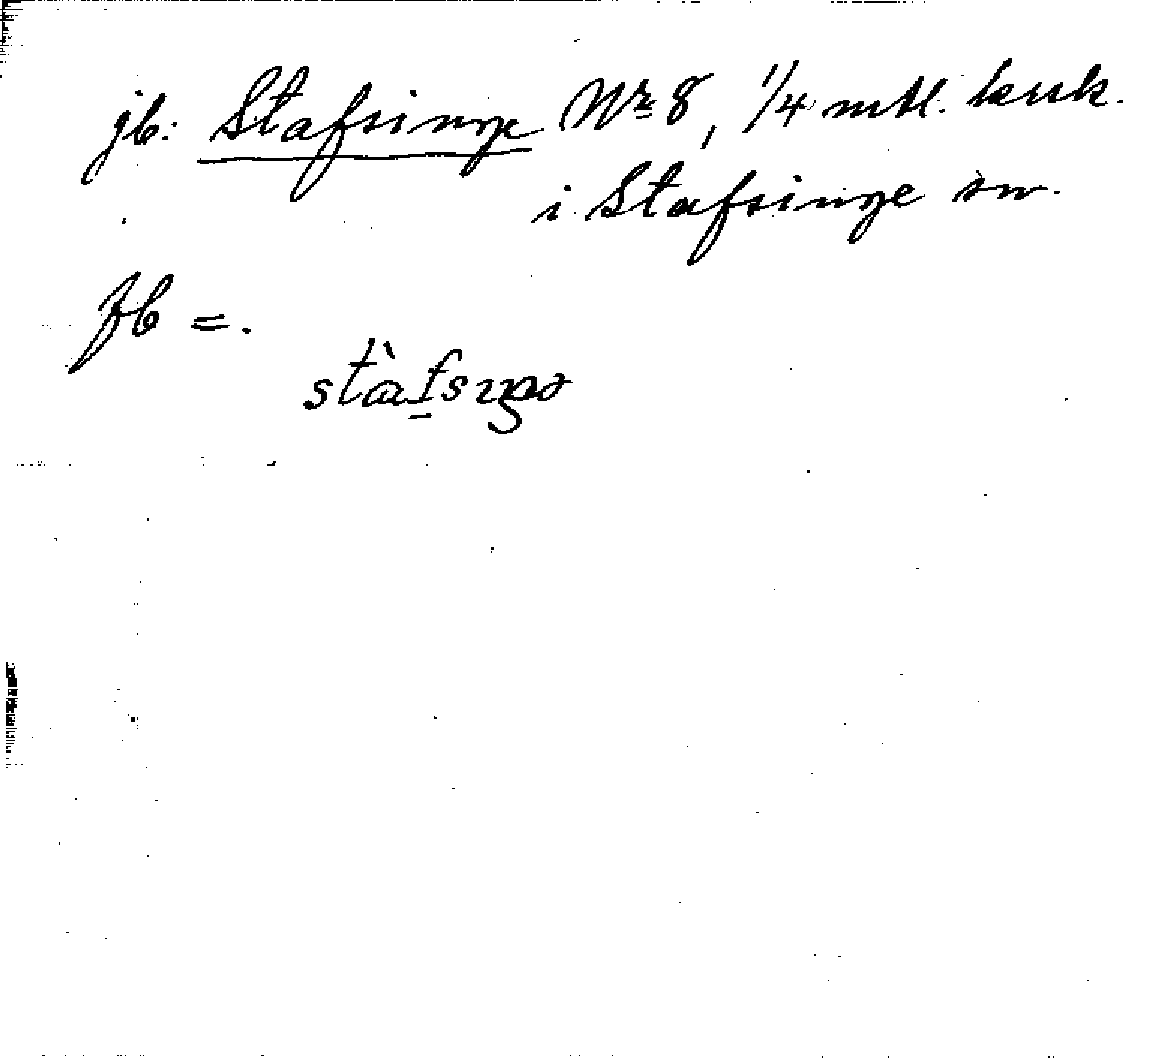 jb: Stafsinge Nr 8, 1/4 mtl.
i Stafsinge sn.
Jb =.